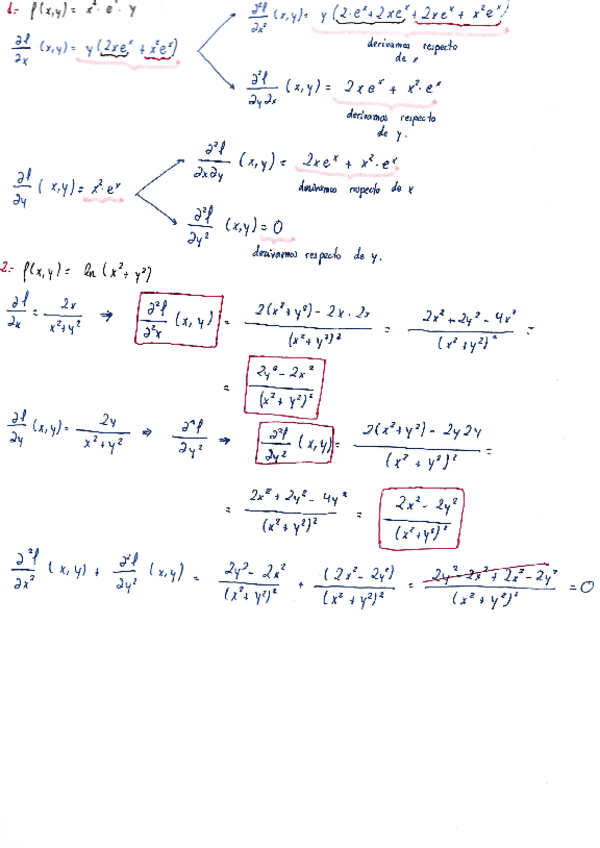 1.- f(x,y) = x² · eˣ · y
∂f/∂x (x,y) = y(2xeˣ + x²eˣ)
∂²f/∂x² (x,y) = y(2·eˣ + 2xeˣ + 2xeˣ + x²eˣ)
derivamos respecto
de x
∂²f/∂y∂x (x,y) = 2xeˣ + x²·eˣ
derivamos respecto
de y.
∂f/∂y (x,y) = x²·eˣ
∂²f/∂x∂y (x,y) = 2xeˣ + x²·eˣ
derivamos respecto de x
∂²f/∂y² (x,y) = 0
derivamos respecto de y.
2.- f(x,y) = ln(x² + y²)
∂f/∂x = 2x/(x²+y²) ⇒ ∂²f/∂²x (x,y) = (2(x²+y²) - 2x·2x)/(x²+y²)² = (2x² + 2y² - 4x²)/(x²+y²)² =
= (2y² - 2x²)/(x²+y²)²
∂f/∂y (x,y) = 2y/(x²+y²) ⇒ ∂²f/∂y² → ∂²f/∂y² (x,y) = (2(x²+y²) - 2y2y)/(x²+y²)² =
= (2x² + 2y² - 4y²)/(x²+y²)² = (2x² - 2y²)/(x²+y²)²
∂²f/∂x² (x,y) + ∂²f/∂y² (x,y) = (2y² - 2x²)/(x²+y²)² + (2x² - 2y²)/(x²+y²)² = (2y² - 2x² + 2x² - 2y²)/(x²+y²)² = 0